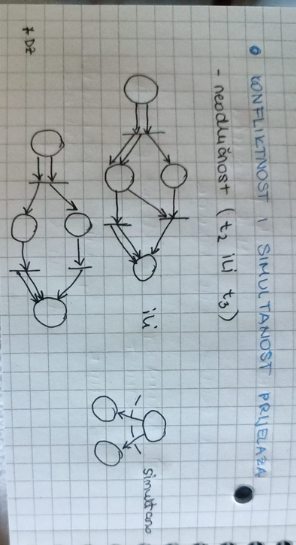 KONFLIKTNOST I SIMULTANOST PRIJELAZA
- neodlučnost (t₂ ili t₃)
ili
simultano
7 DZ